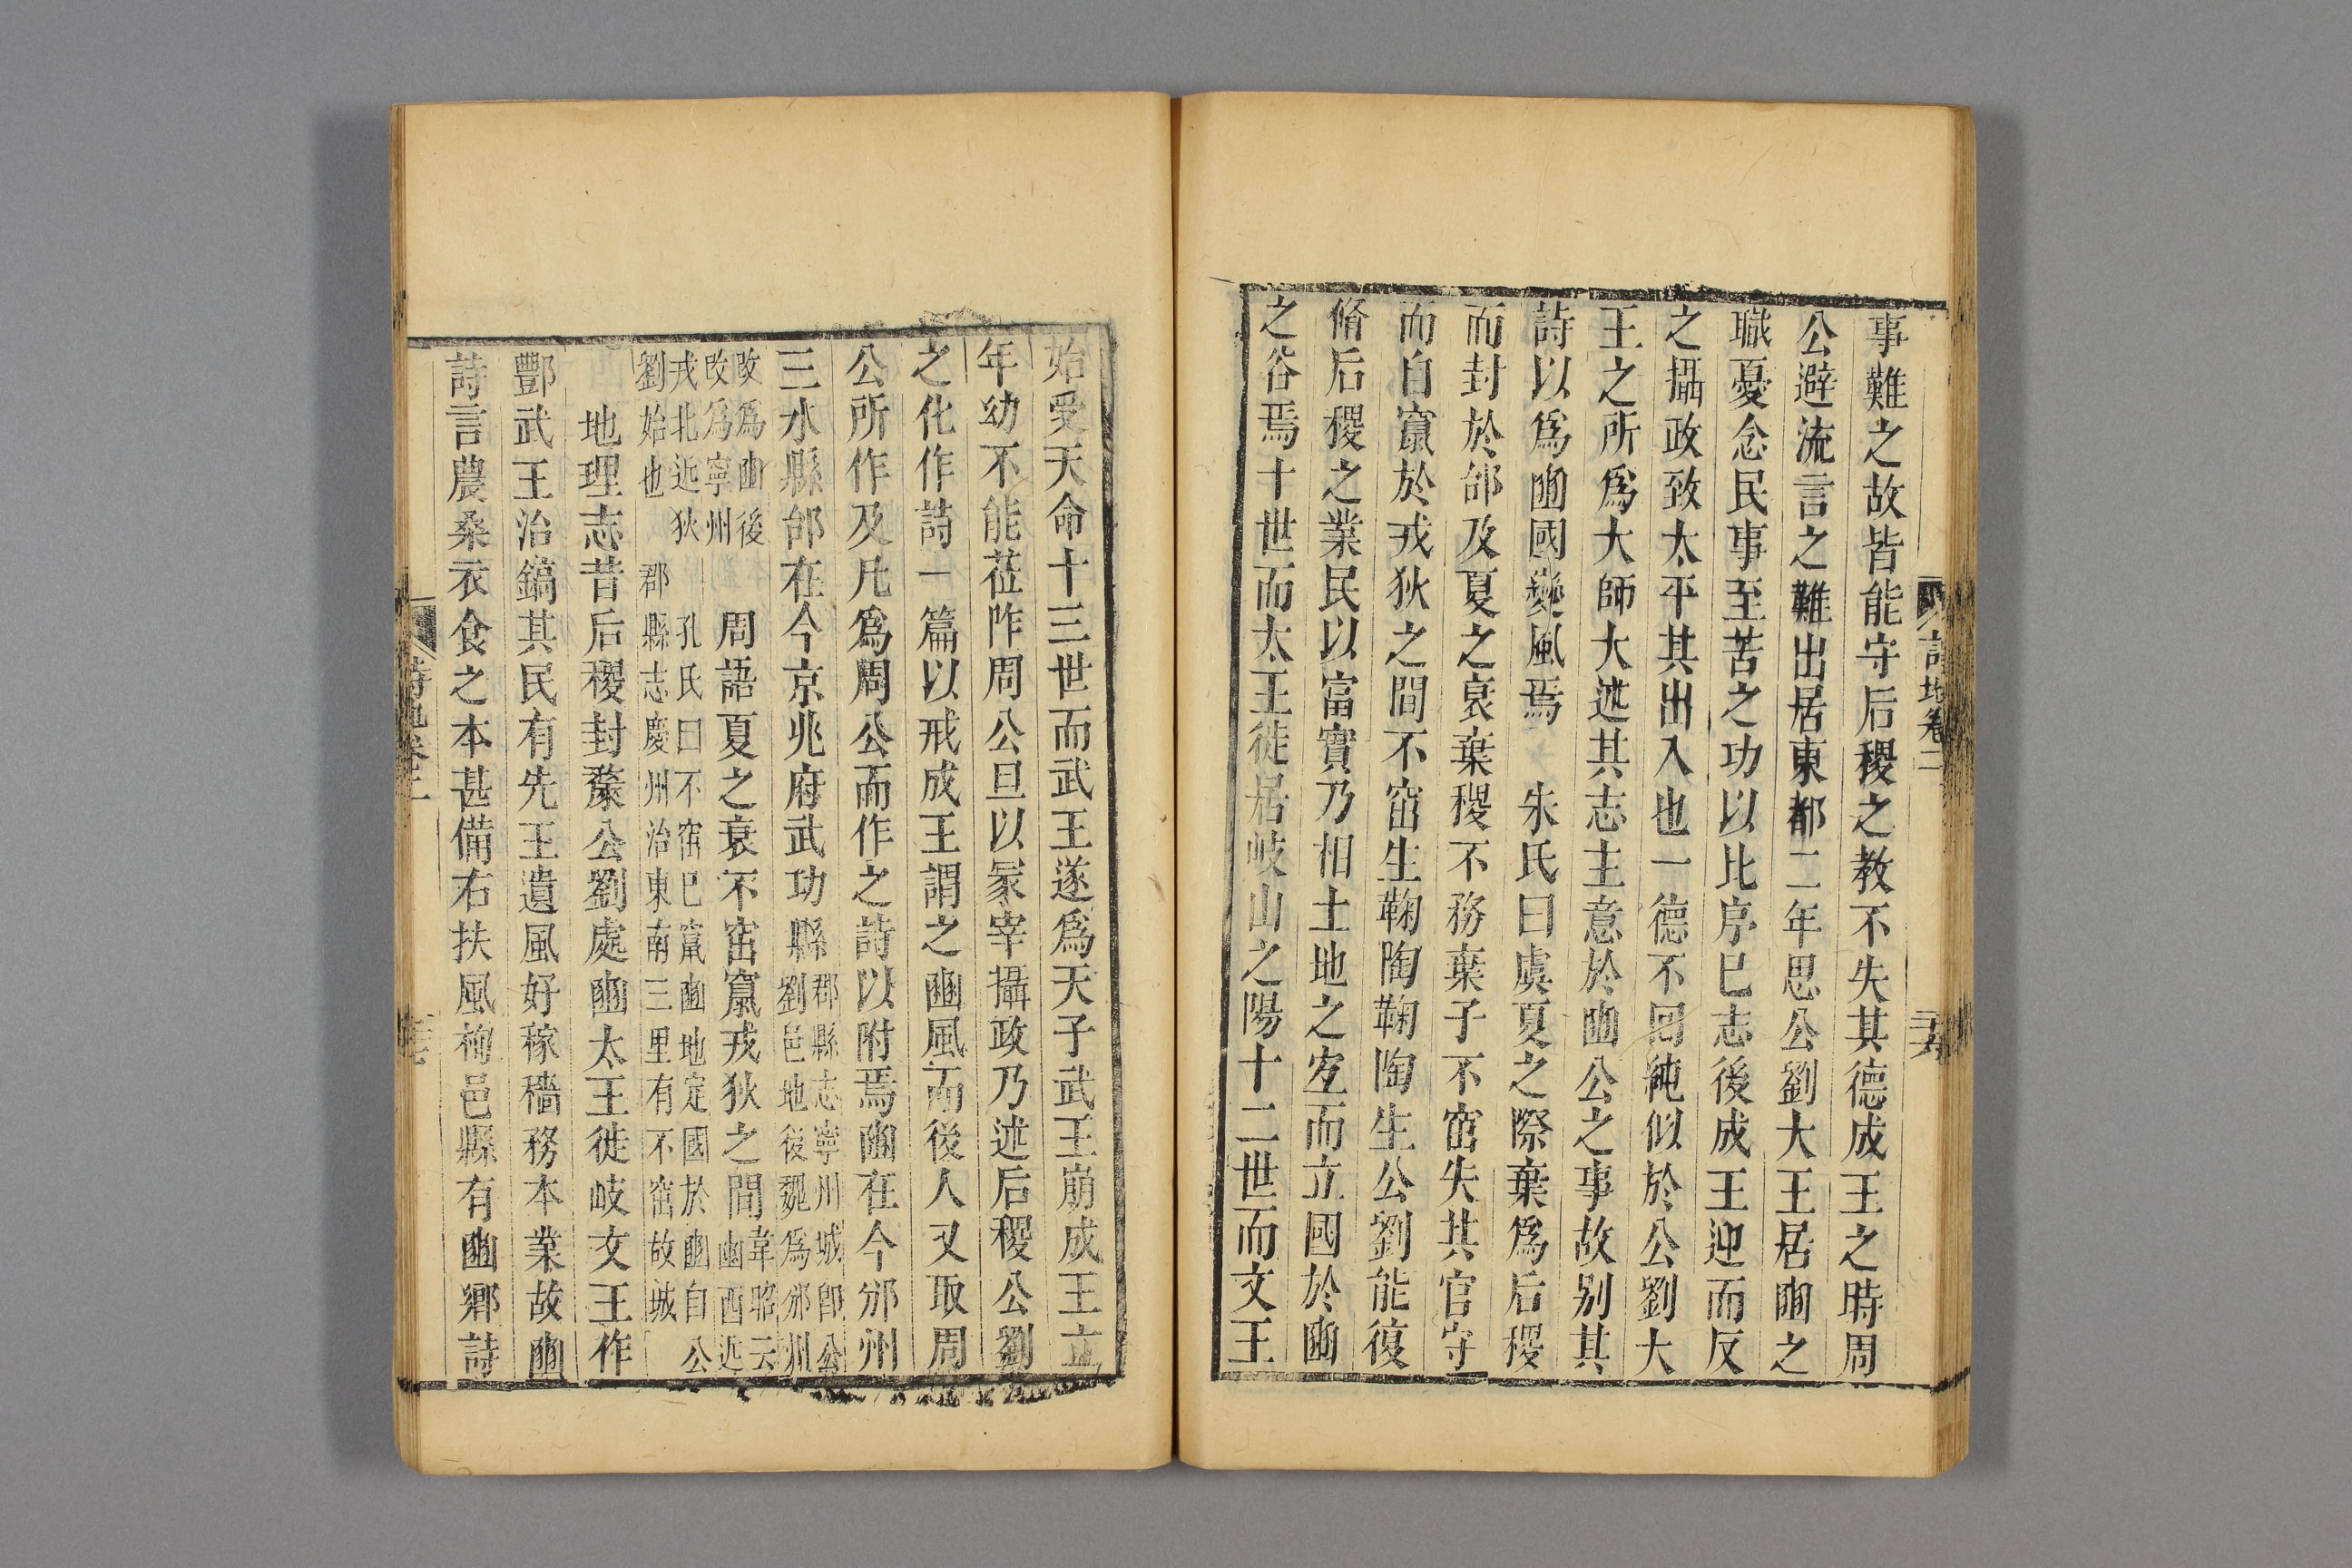 詩地卷二
二十六
事難之故皆能守后稷之教不失其德成王之時周
公避流言之難出居東都二年思公劉大王居豳之
職憂念民事至苦之功以比序已志後成王迎而反
之攝政致太平其出入也一德不回純似於公劉大
王之所爲大師大述其志主意於豳公之事故别其
詩以爲豳國變風焉 朱氏曰虞夏之際棄爲后稷
而封於邰及夏之衰棄稷不務棄子不窋失其官守
而自竄於戎狄之間不窋生鞠陶鞠陶生公劉能復
脩后稷之業民以富實乃相土地之宐而立國於豳
之谷焉十世而太王徙居岐山之陽十二世而文王
始受天命十三世而武王遂爲天子武王崩成王立
年幼不能莅阼周公旦以冢宰攝政乃述后稷公劉
之化作詩一篇以戒成王謂之豳風而後人又取周
公所作及凡爲周公而作之詩以附焉豳在今邠州
三水縣邰在今京兆府武功縣
郡縣志寧州城卽公
劉邑地後魏爲邠州
改爲豳後
改爲寧州
周語夏之衰不窋竄戎狄之間
韋昭云
豳西近
戎北近狄
孔氏曰不窋已竄豳地定國於豳自公
劉始也
郡縣志慶州治東南三里有不窋故城
地理志昔后稷封斄公劉處豳太王徙岐文王作
酆武王治鎬其民有先王遺風好稼穡務本業故豳
詩言農桑衣食之本甚備右扶風栒邑縣有豳鄉詩
詩地卷二